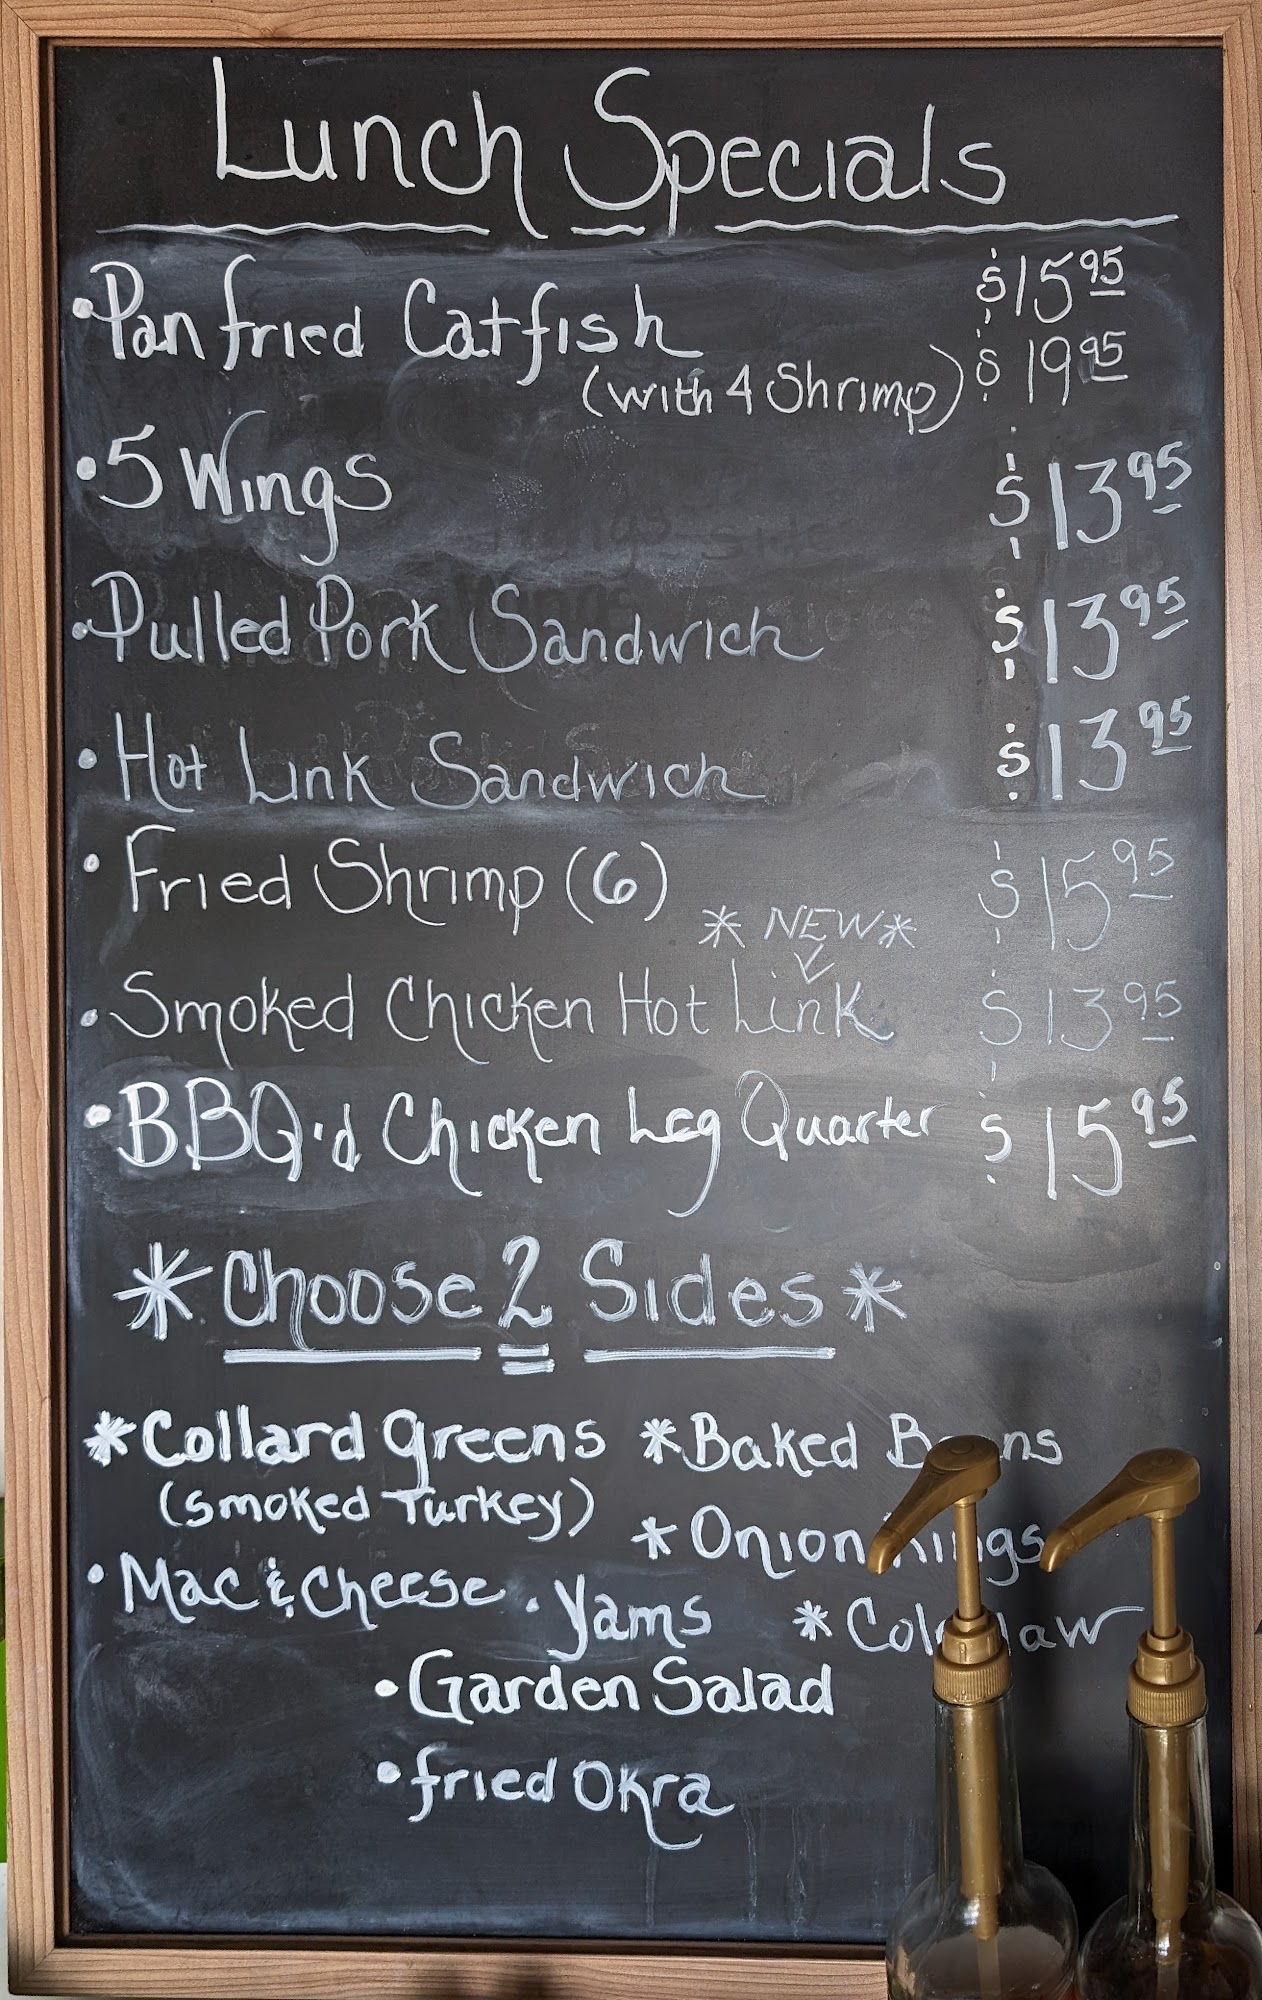 Lunch Specials
• Pan fried Catfish $15 95
(with 4 Shrimp) $19 95
• 5 Wings $13 95
• Pulled Pork Sandwich $13 95
• Hot Link Sandwich $13 95
• Fried Shrimp (6) $15 95
* NEW *
• Smoked Chicken Hot Link $13 95
• BBQ'd Chicken Leg Quarter $15 95
* Choose 2 Sides *
* Collard greens * Baked B ns
(Smoked Turkey)
* Onion Rings
• Mac & Cheese • Yams * Cole law
• Garden Salad
• fried Okra